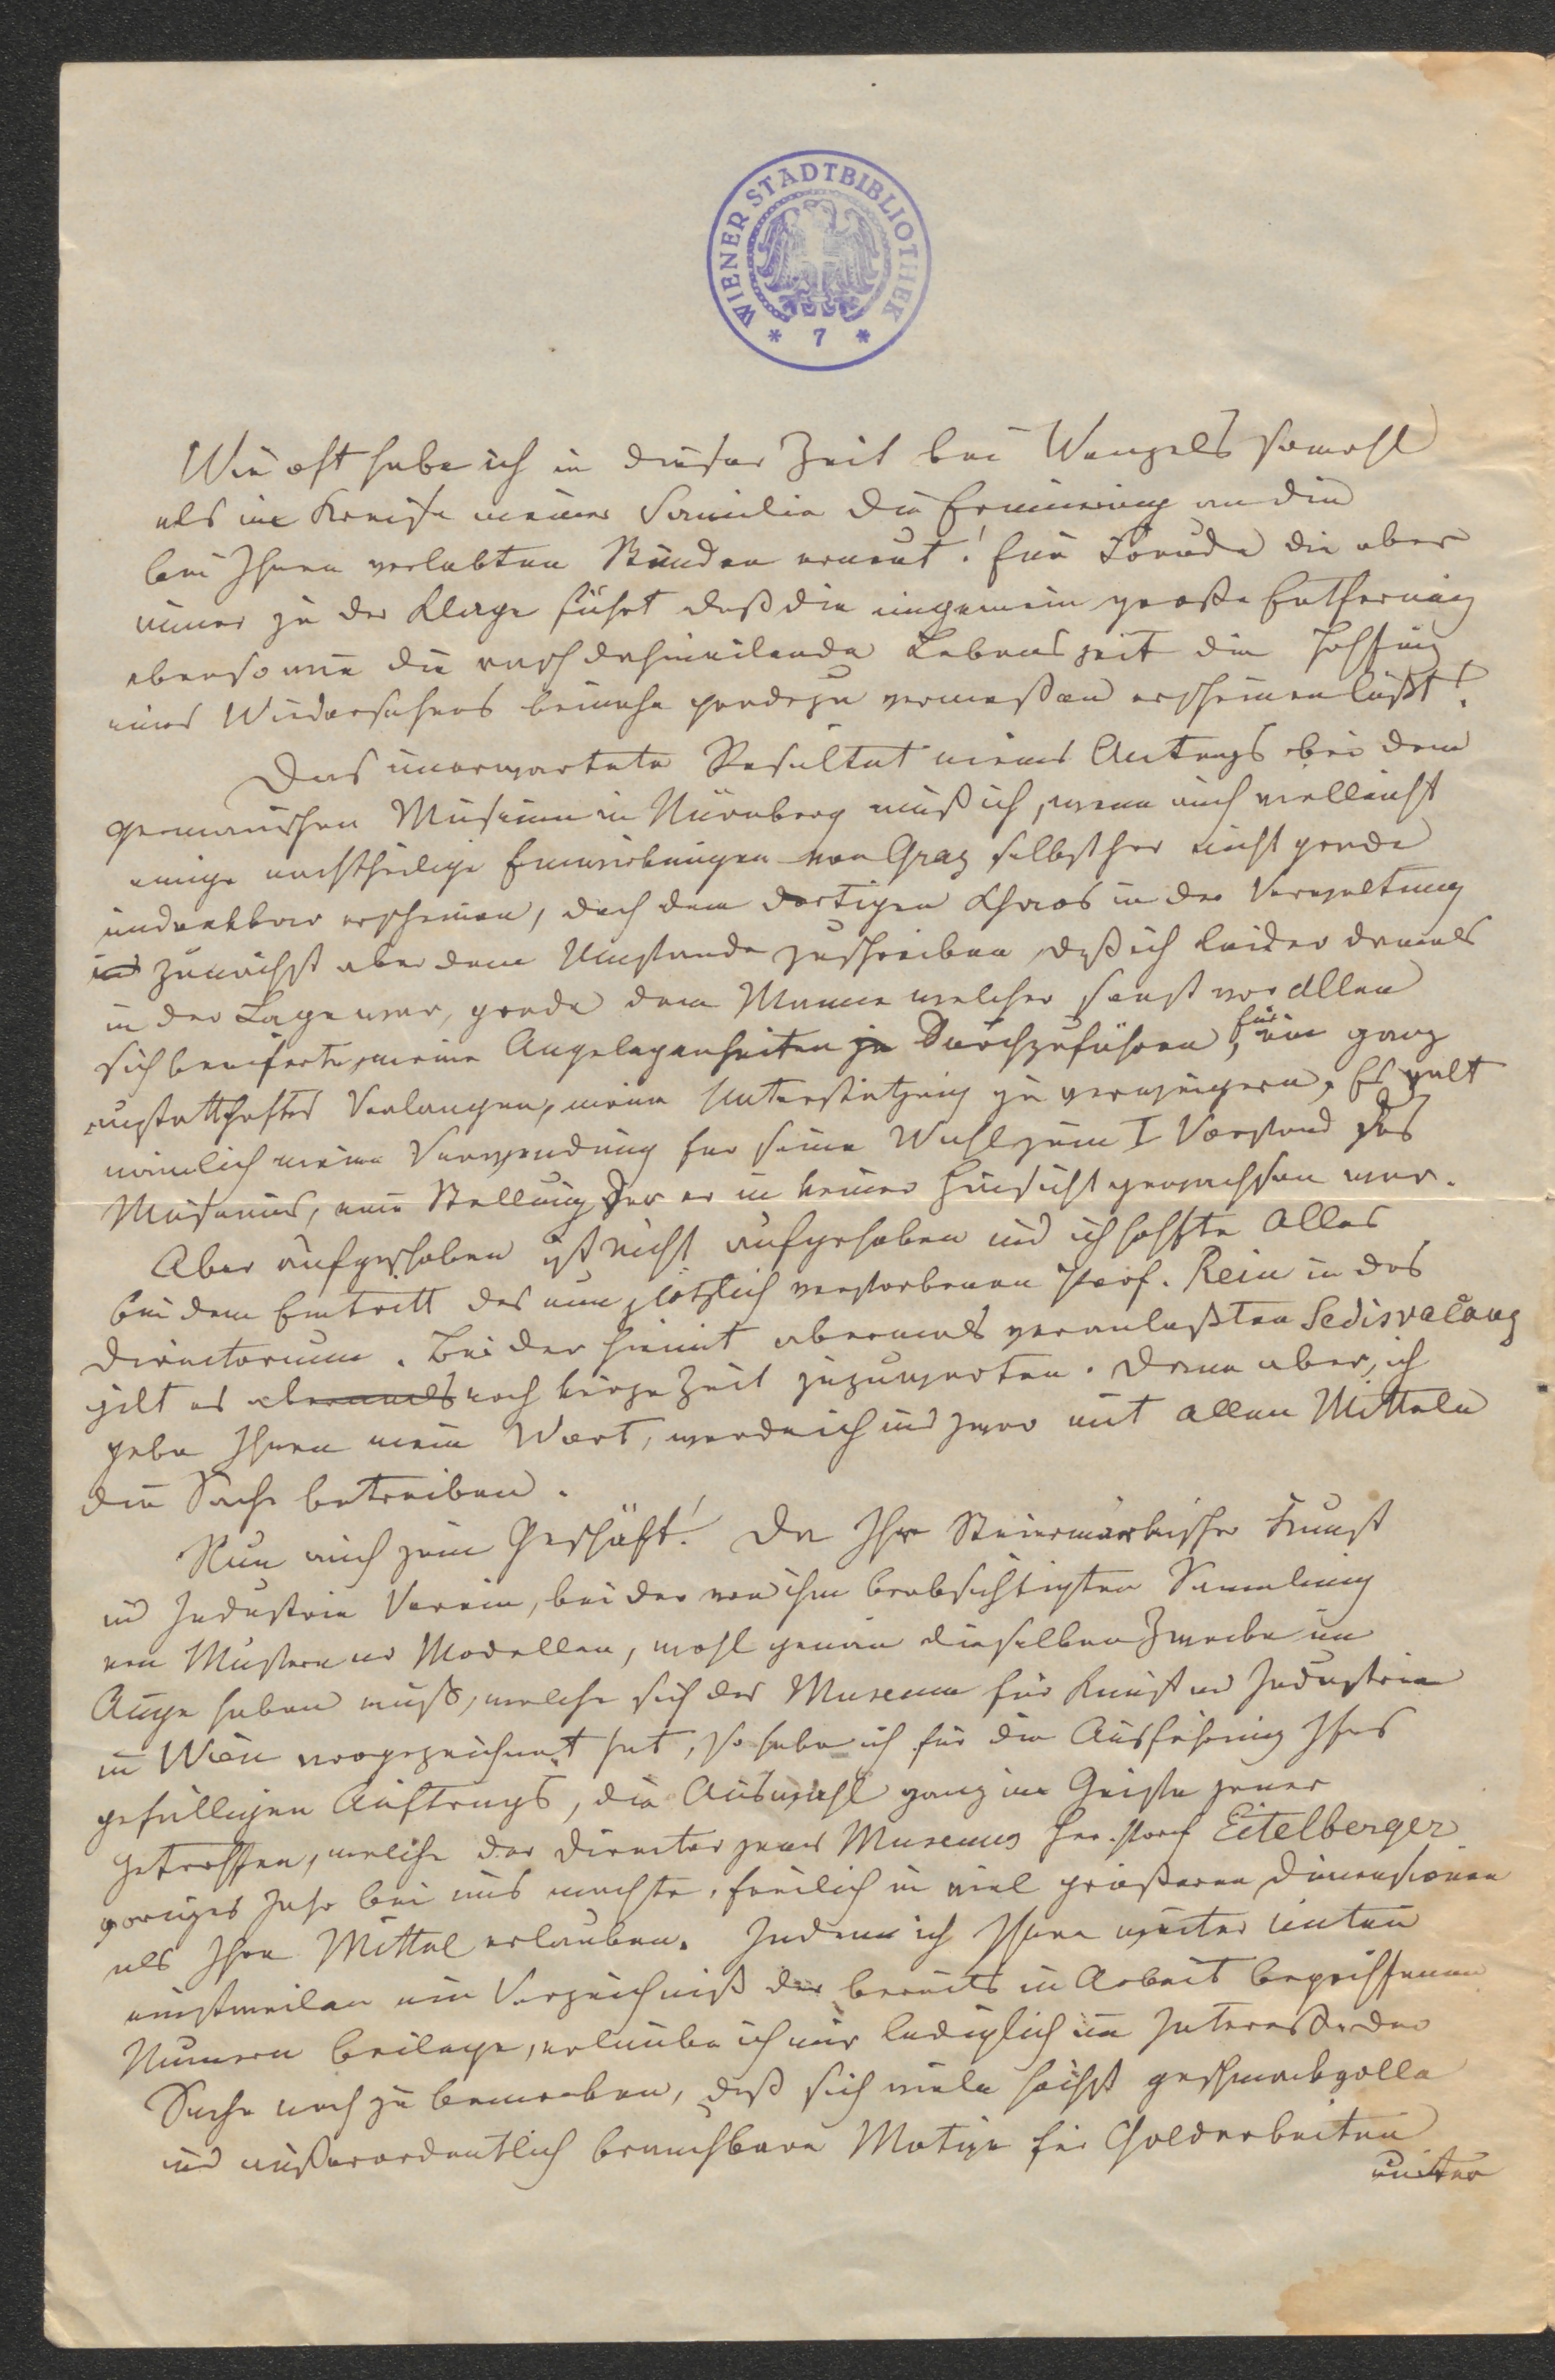 WIENER STADTBIBLIOTHEK
* 7 *
Wie oft habe ich in dieser Zeit bei Wenzels sowohl
als im Kreise meiner Familie die Erinnerung an die
bei Ihnen verlebten Stunden erneut! Eine Freude die aber
immer zu der Klage führt daß die ungemein große Entfernung
ebenso wie die rasch dahineilende Lebenszeit die Hoffnung
eines Wiedersehens beinahe geradezu vermeßen erscheinen läßt!
Das unerwartete Resultat meines Antrags bei dem
germanischen Museum in Nürnberg muß ich, wenn auch vielleicht
einige nachtheilige Einwirkungen von Graz selbst her nicht gerade
undenkbar erscheinen, doch dem dortigen Chaos in der Verwaltung
zunächst aber dem Umstande zuschreiben, daß ich leider damals
in der Lage war, gerade dem Manne welcher sonst vor Allen
sich beeiferte, meine Angelegenheiten durchzuführen, für ein ganz
unstatthaftes Verlangen, meine Unterstützung zu verweigern. Es galt
nämlich meine Verwendung für seine Wahl zum I Vorstand des
Museums, eine Stellung der er in keiner Hinsicht gewachsen war.
Aber aufgeschoben ist nicht aufgehoben und ich hoffte Alles
bei dem Eintritt des nun plötzlich verstorbenen Prof. Rein in das
Directorium. Bei der hiemit abermals veranlaßten Sedisvacanz
gilt es abermals noch kurze Zeit zuzuwarten. Dann aber, ich
gebe Ihnen mein Wort, werde ich und zwar mit allen Mitteln
die Sache betreiben.
Nun auch zum Geschäft! Da Ihr Steiermärkischer Kunst
und Industrie Verein, bei der von ihm beabsichtigten Sammlung
von Mustern und Modellen, wohl genau dieselben Zwecke im
Auge haben muß, welche sich das Museum für Kunst und Industrie
in Wien vorgezeichnet hat, so habe ich für die Ausführung Ihres
gefälligen Auftrags, die Auswahl ganz im Geiste jener
getroffen, welche der Director jenes Museums Her. Prof Eitelberger
voriges Jahr bei uns machte, freilich in viel größeren Dimensionen
als Ihre Mittel erlauben. Indem ich Ihnen weiter unten
einstweilen ein Verzeichniß der bereits in Arbeit begriffenen
Numern beilege, erlaube ich mir lediglich im Interesse der
Sache noch zu bemerken, daß sich viele höchst geschmackvolle
und außerordentlich brauchbare Motive für Goldarbeiten
unter